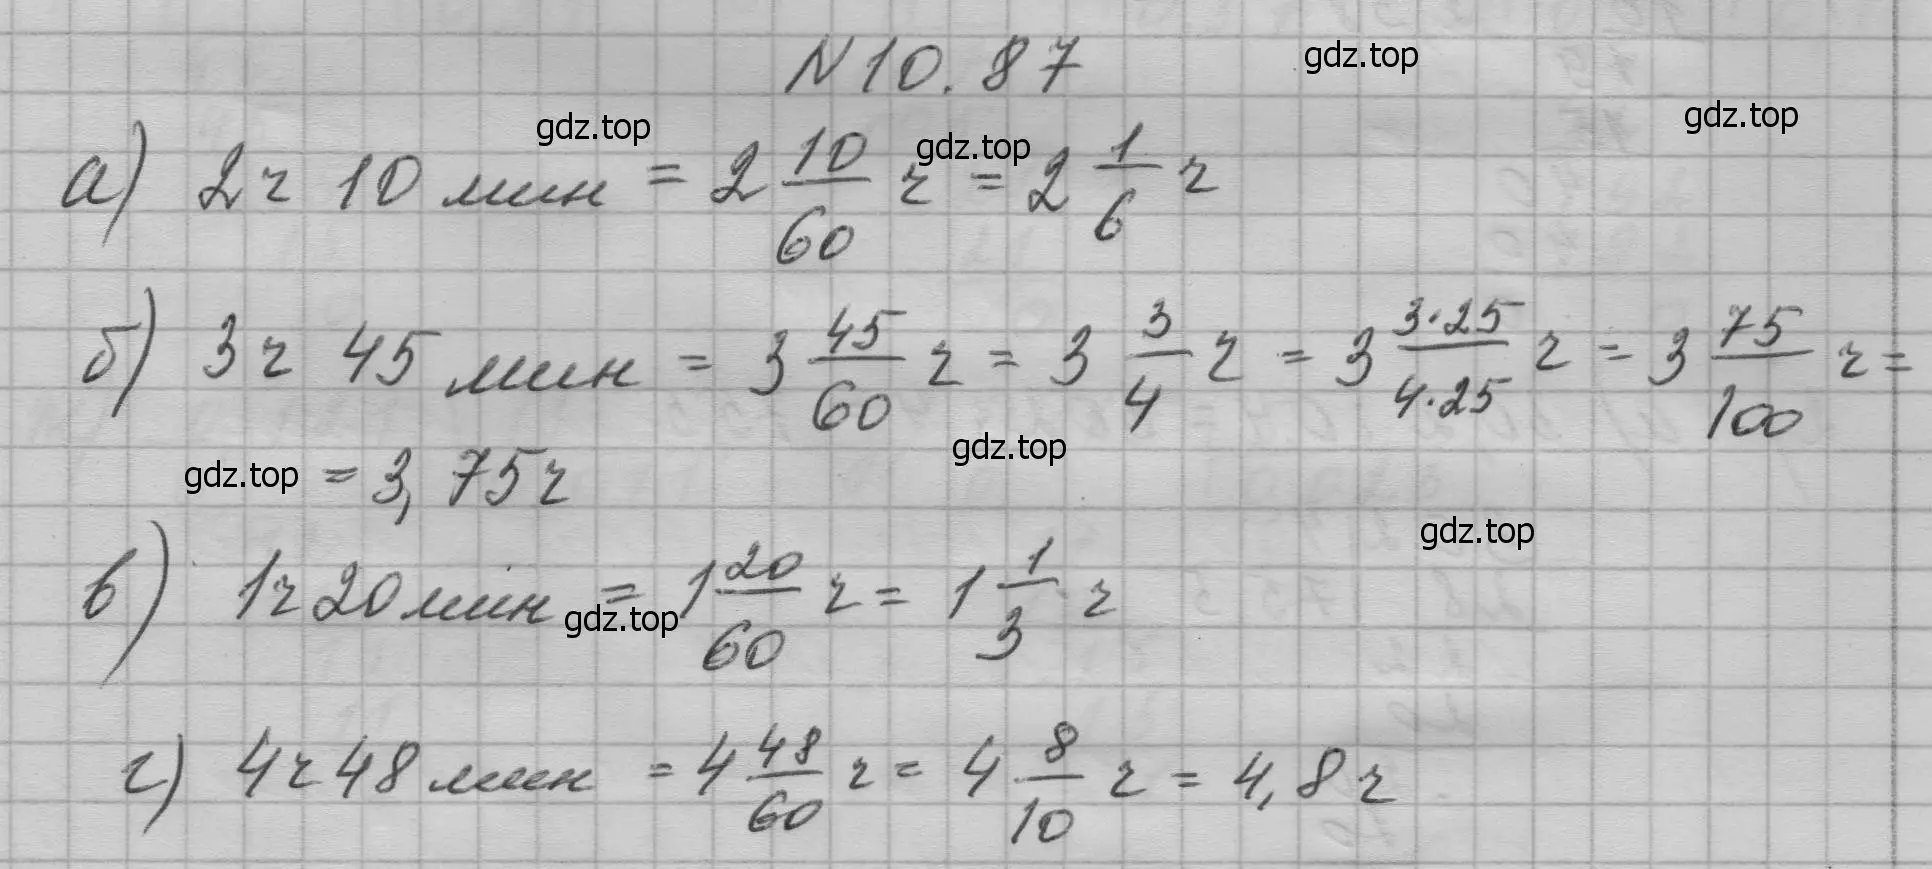 N10.87
gdz.top
gdz.top
gdz.top
gdz.top
а) 2ч 10 мин = 2 10/60 ч = 2 1/6 ч
б) 3ч 45 мин = 3 45/60 ч = 3 3/4 ч = 3 3·25/4·25 ч = 3 75/100 ч =
gdz.top = 3,75ч
gdz.top
gdz.top
в) 1ч 20 мин = 1 20/60 ч = 1 1/3 ч
gdz.top
г) 4ч 48 мин = 4 48/60 ч = 4 8/10 ч = 4,8 ч